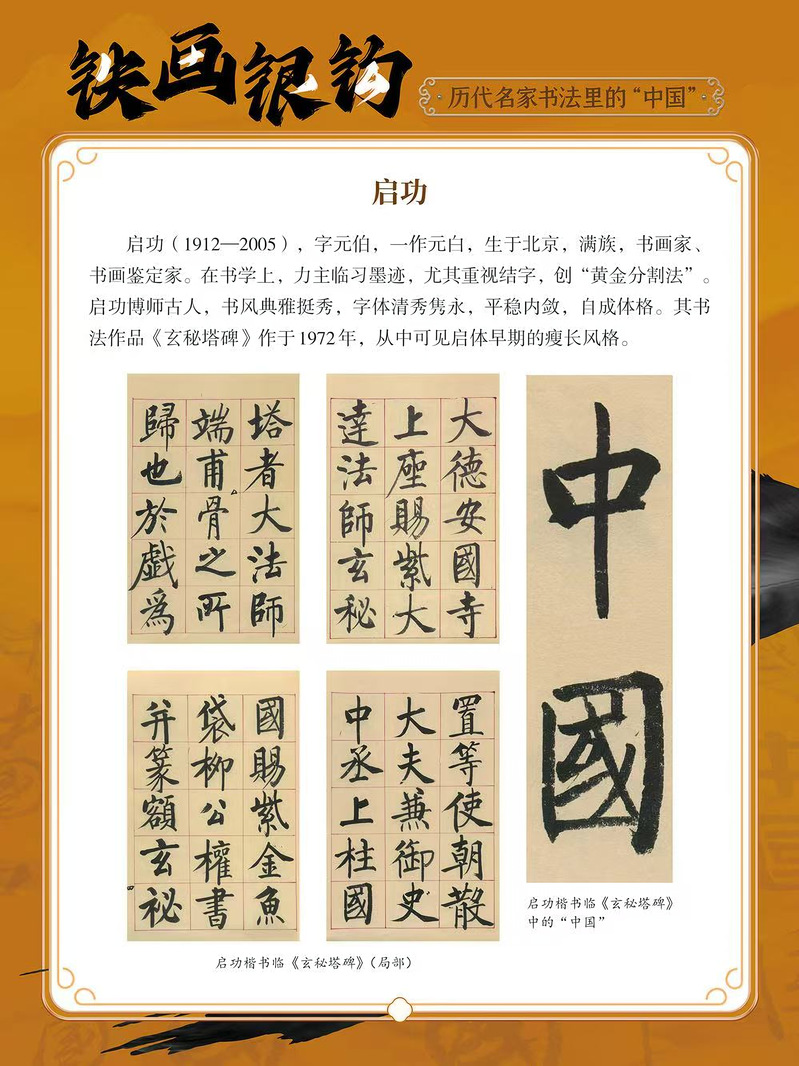 铁画银钩
历代名家书法里的“中国”
启功
启功（1912—2005），字元伯，一作元白，生于北京，满族，书画家、
书画鉴定家。在书学上，力主临习墨迹，尤其重视结字，创“黄金分割法”。
启功博师古人，书风典雅挺秀，字体清秀隽永，平稳内敛，自成体格。其书
法作品《玄秘塔碑》作于1972年，从中可见启体早期的瘦长风格。
大德安國寺
上座賜紫大
達法師玄秘
塔者大法師
端甫骨之所
歸也於戲為
置等使朝散
大夫兼御史
中丞上柱國
國賜紫金魚
袋柳公權書
并篆額玄祕
启功楷书临《玄秘塔碑》（局部）
中國
启功楷书临《玄秘塔碑》
中的“中国”